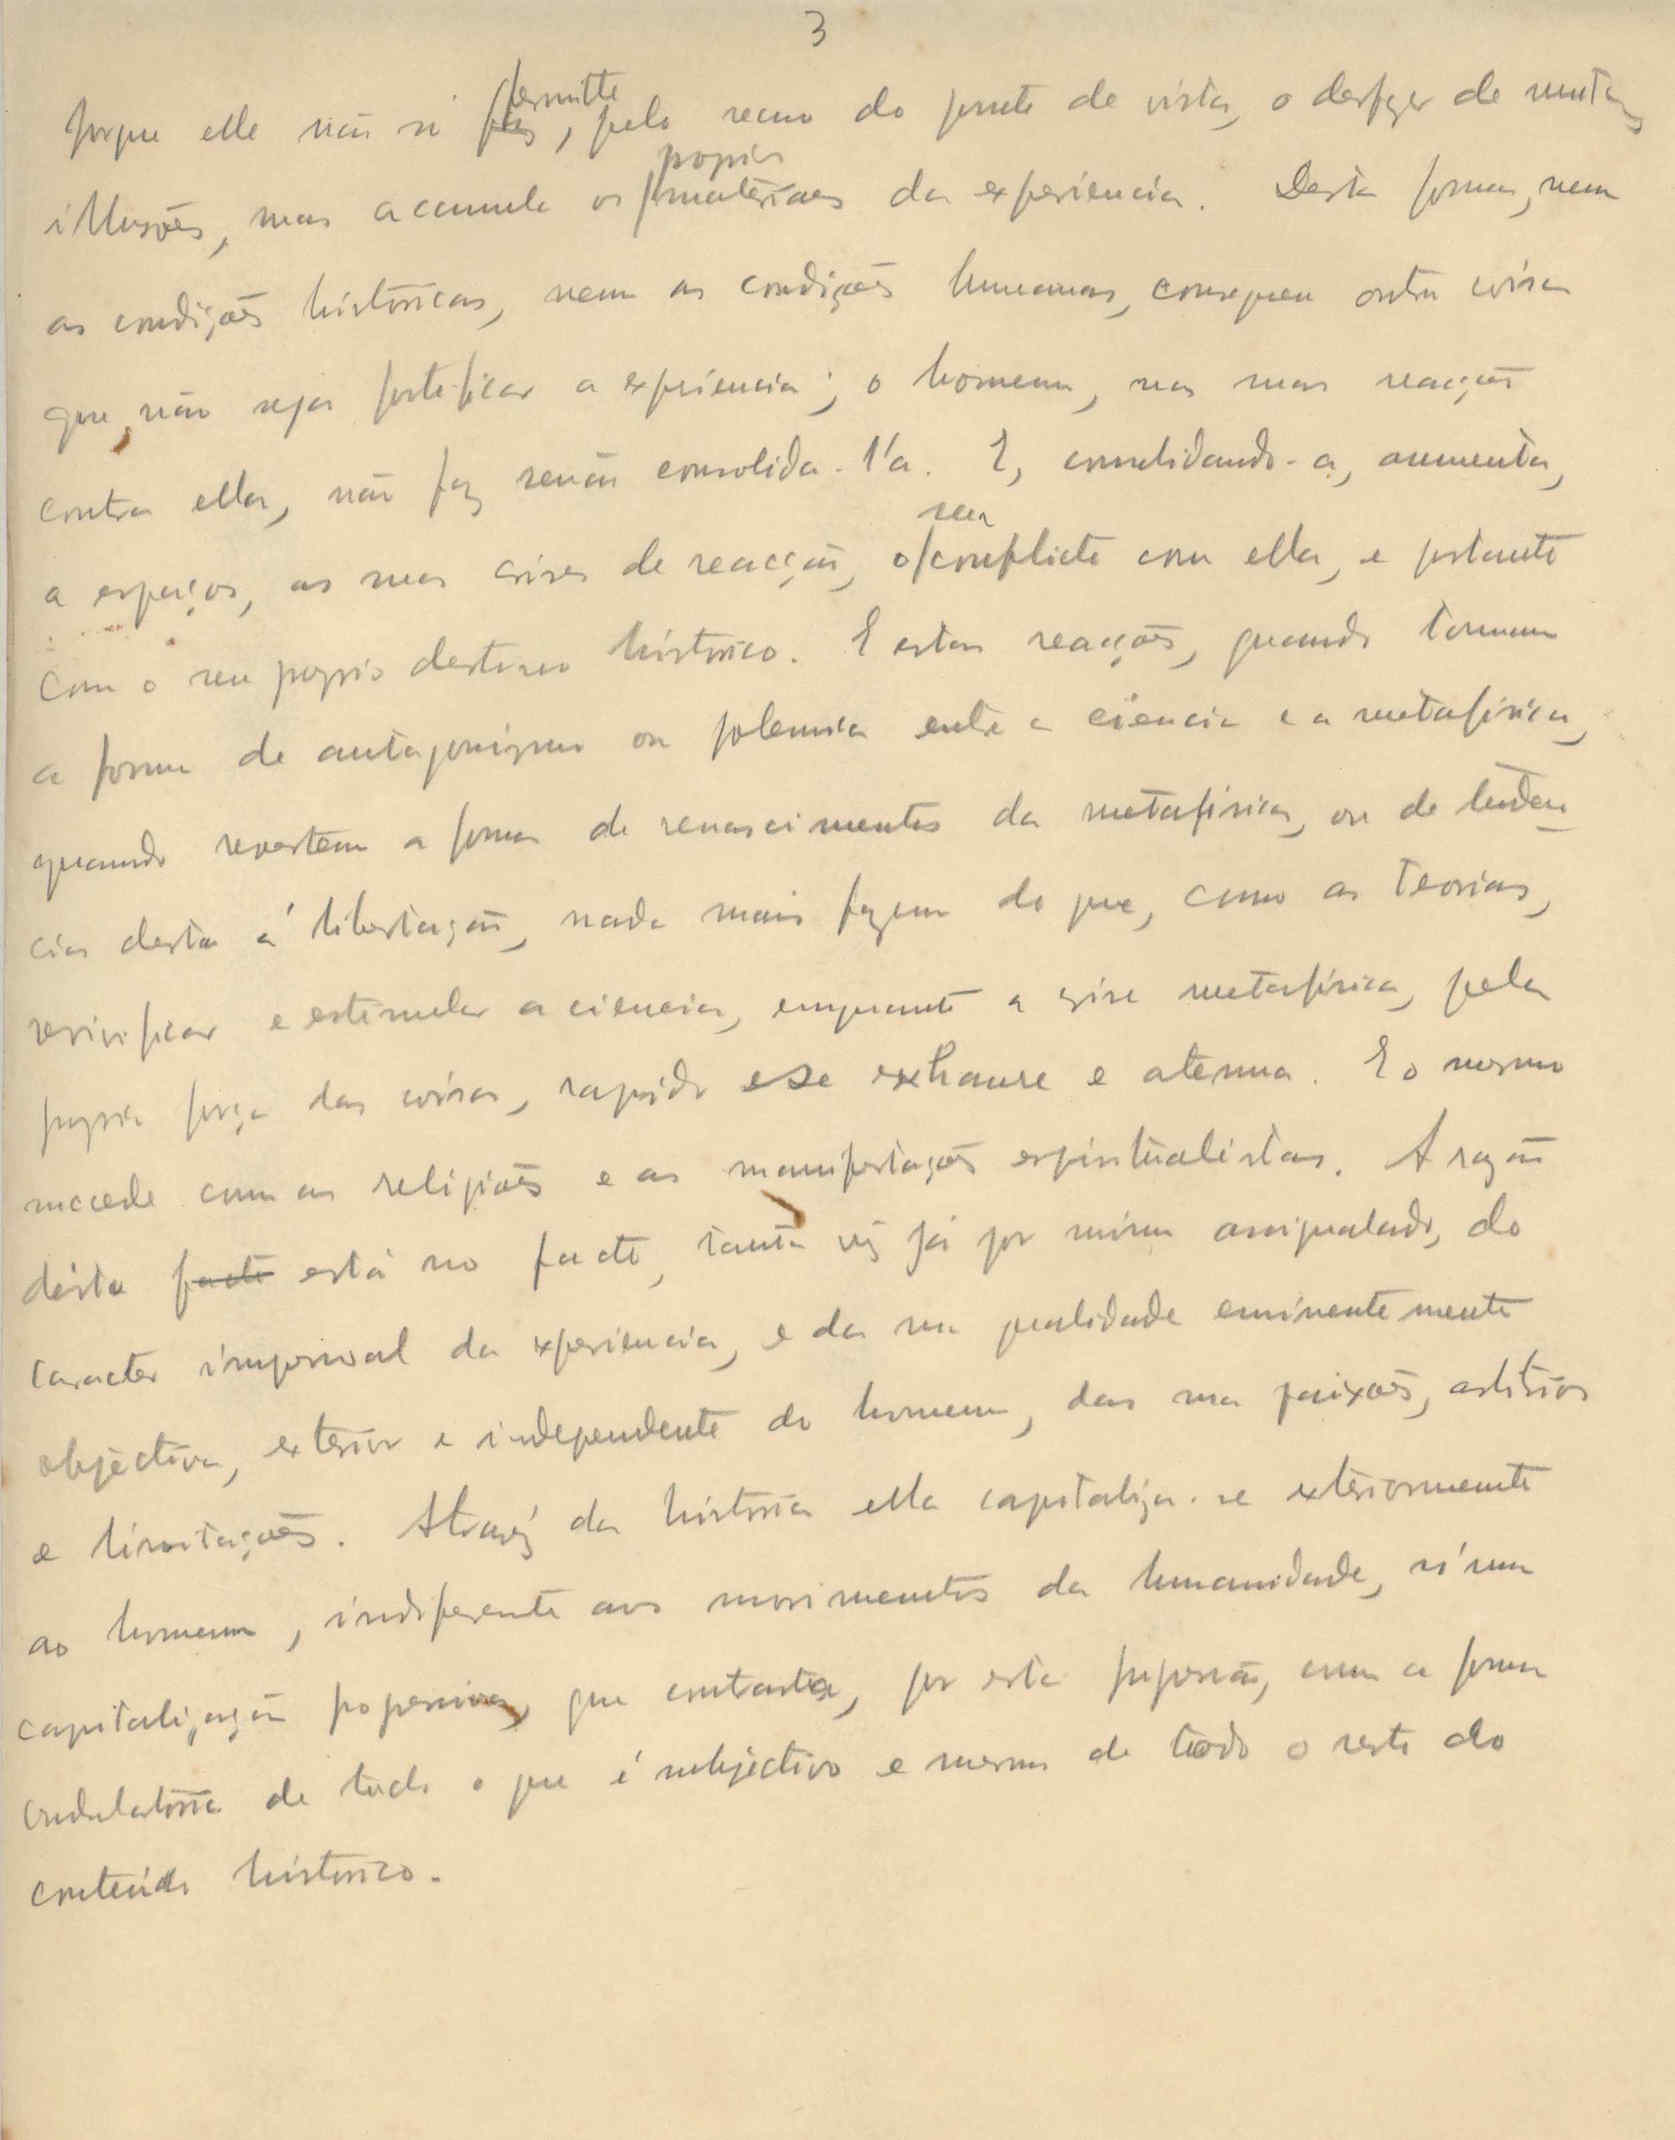 3
porque elle não só permitte, pelo recuo do ponto de vista, o desfazer de muitas
illusões, mas accumula os proprios materiaes da experiencia. Desta forma, nem
as condições historicas, nem as condições humanas, conseguem outra coisa
que não seja fortificar a experiencia; o homem, nas suas reacções
contra ella, não faz senão consolida-l'a. E, consolidando-a, aumenta,
a espaços, as suas crises de reacção, o seu conflicto com ella, e portanto
com o seu proprio destino historico. E estas reacções, quando tomam
a forma de antagonismo ou polemica entre a ciencia e a metafisica,
quando revestem a forma de renascimentos da metafisica, ou de tenden
cias desta á libertação, nada mais fazem do que, como as teorias,
revivificar e estimular a ciencia, emquanto a crise metafisica, pela
propria força das coisas, rapido se exhaure e atenua. E o mesmo
succede com as religiões e as manifestações espiritualistas. A razão
désta facto está no facto, tanta vez já por mim assignalado, do
caracter impessoal da experiencia, e da sua qualidade eminentemente
objectiva, exterior e independente do homem, das suas paixões, arbitrios
e limitações. Atravez da historia ella capitaliza-se exteriormente
ao homem, indiferente aos movimentos da humanidade,
capitalização progressiva, que contrasta, por esta progressão, com a forma
ondulatoria de tudo o que é subjectivo e mesmo de todo o resto do
conteúdo historico.